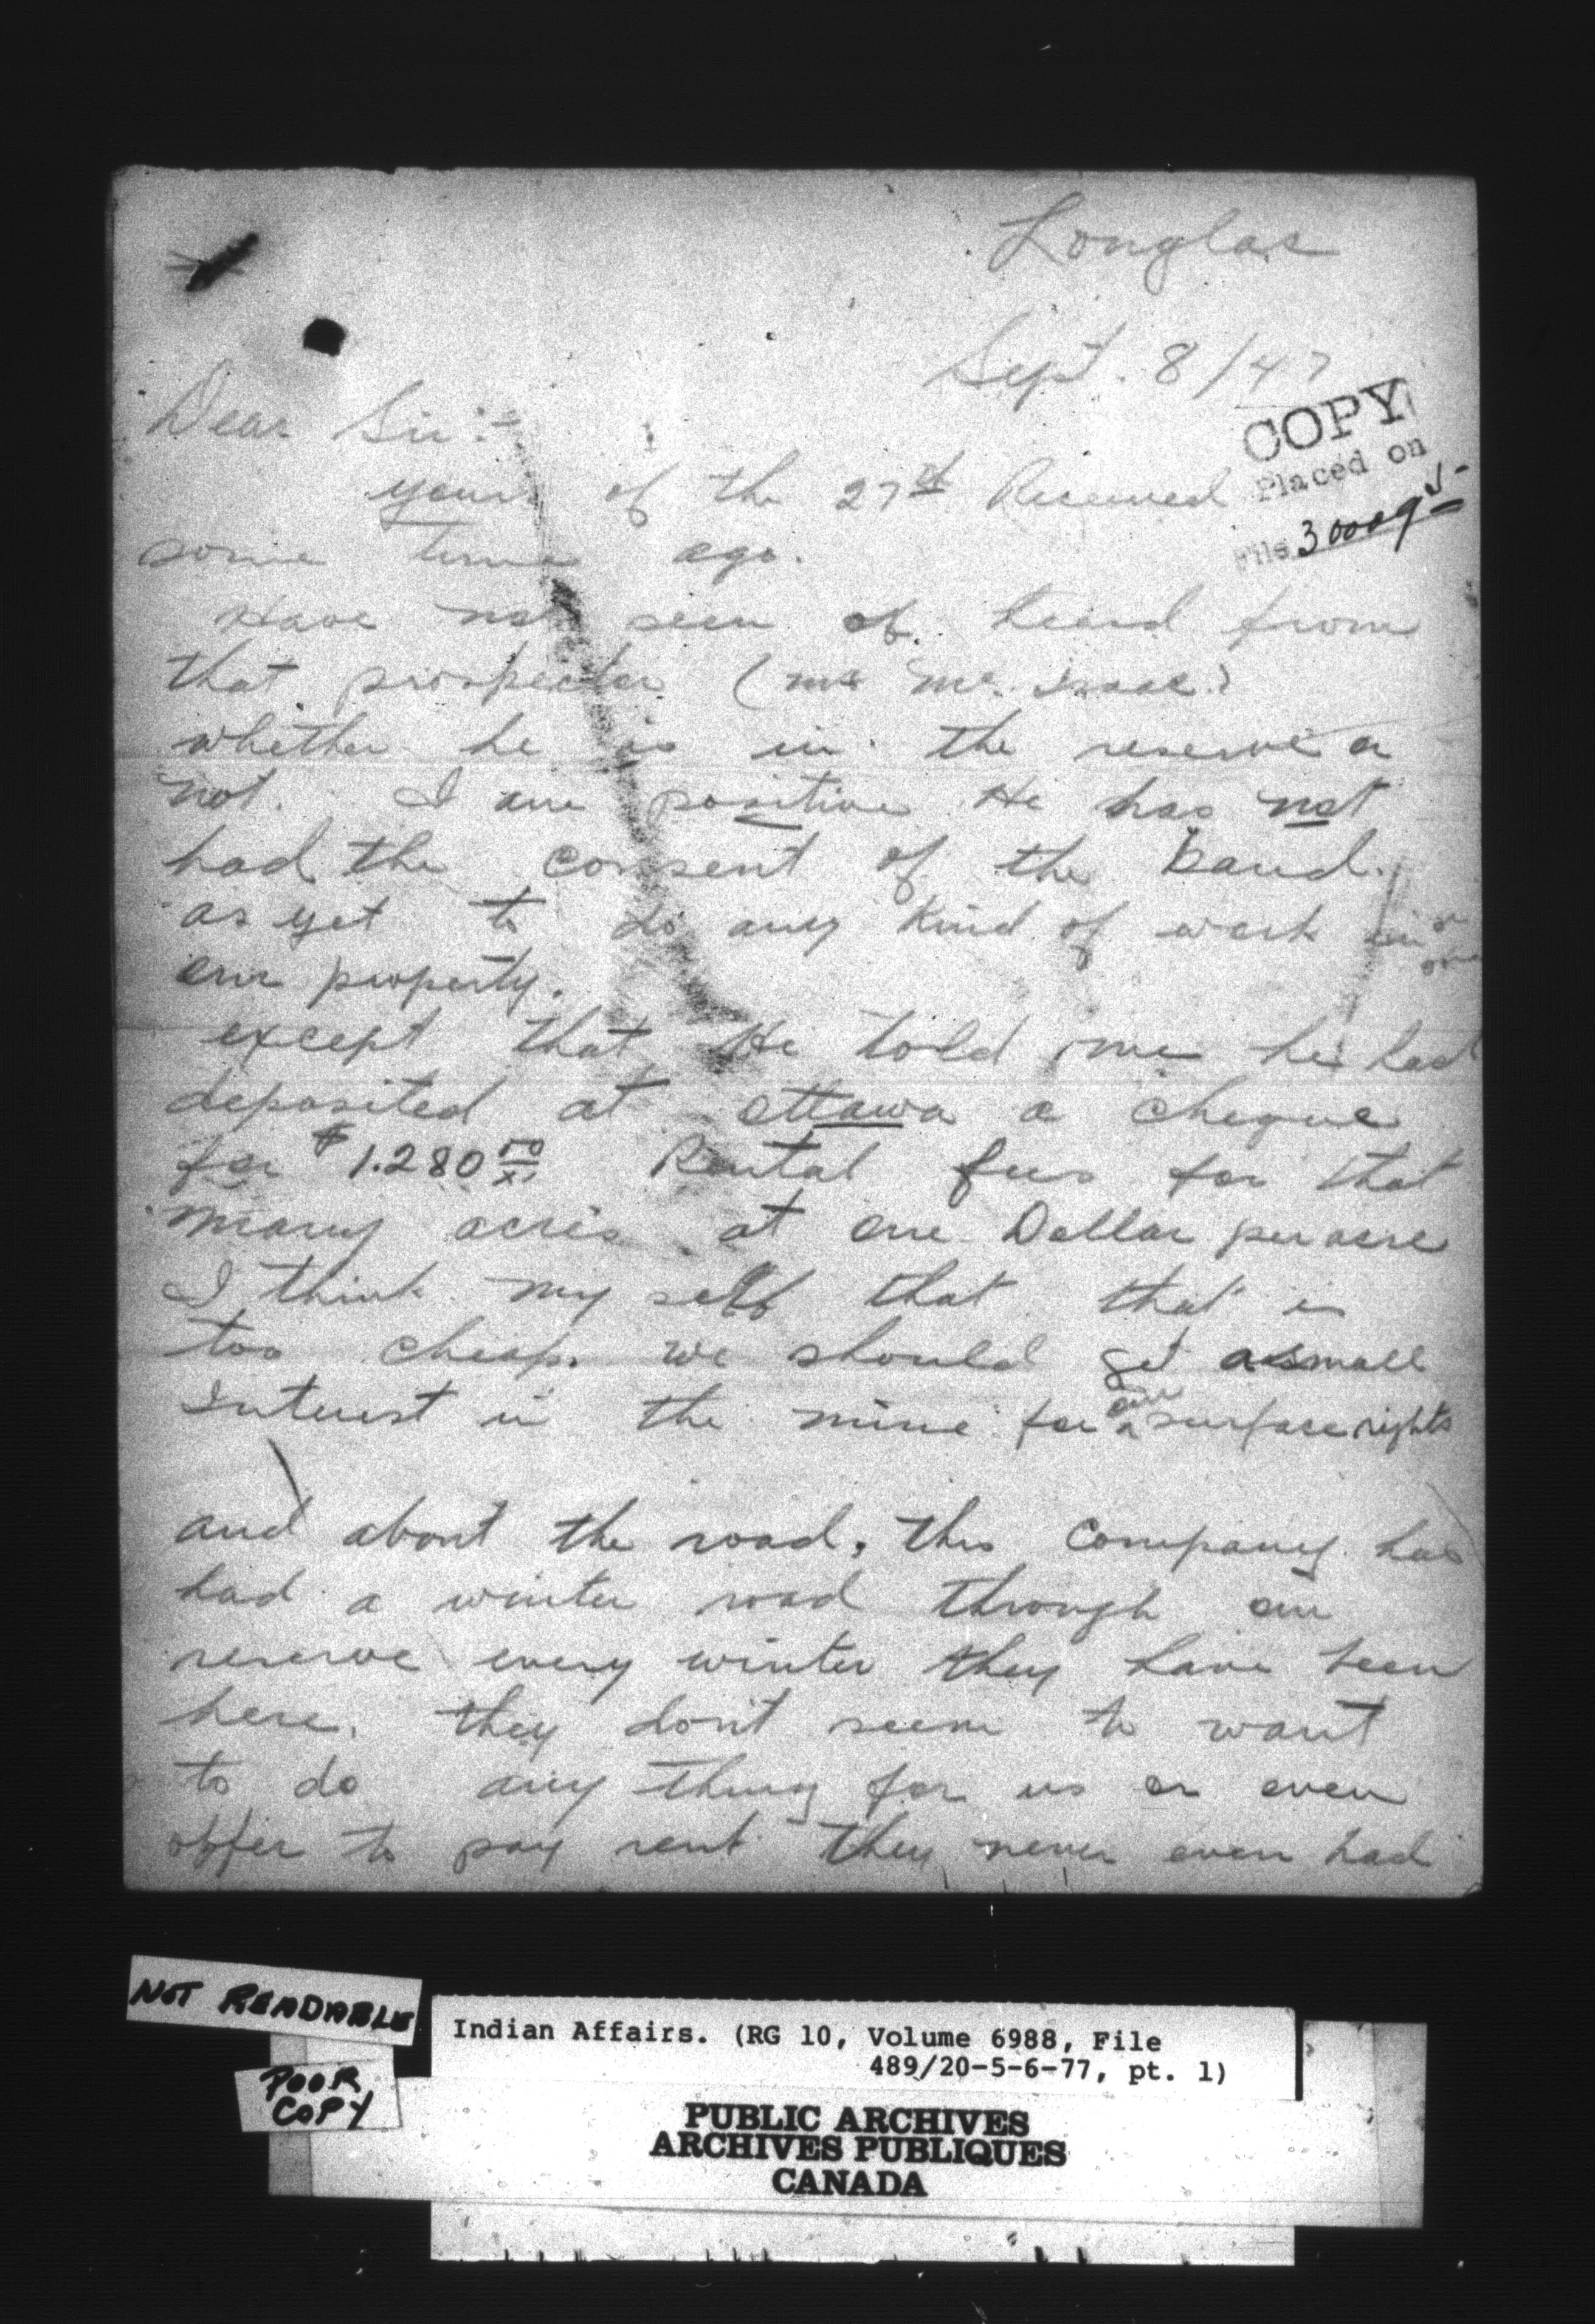 Longlac
Sept. 8/47
Dear Sir:-
COPY
Placed on
File 30009-5
yours of the 27th Received
some time ago.
Have not seen of heard from
that prospector (mr mc. Isaac)
whether he is in the reserve or
not. I am positive He has not
had the consent of the Band.
as yet to do any Kind of work on
our property.
except that He told me he had
deposited at ottawa a cheque
for $1.280 00/xx Rental fees for that
many acres at one Dollar per acre
I think my self that that is
too cheap. we should get a small
Interest in the mine for our surface rights
and about the road, this Company has
had a winter road through our
reserve every winter they have been
here. they don't seem to want
to do any thing for us or even
offer to pay rent they never even had
NOT READABLE
POOR
COPY
Indian Affairs. (RG 10, Volume 6988, File
489/20-5-6-77, pt. 1)
PUBLIC ARCHIVES
ARCHIVES PUBLIQUES
CANADA